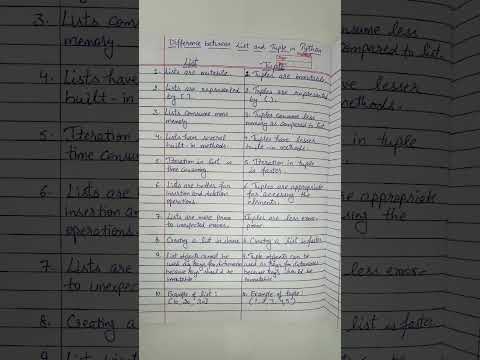 Difference between List and Tuple in Python
List
Tuple
1. Lists are mutable.
1. Tuples are immutable.
2. Lists are represented
by [ ].
2. Tuples are represented
by ( ).
3. Lists consume more
memory
3. Tuples consume less
memory as compared to list.
4. Lists have several
built-in methods.
4. Tuples have lesser
built-in methods.
5. Iteration in list is
time consuming.
5. Iteration in tuple
is faster.
6. Lists are better for
insertion and deletion
operations.
6. Tuples are appropriate
for accessing the
elements.
7. Lists are more prone
to unexpected errors.
Tuples are less error-
prone.
8. Creating a list is slower
8. Creating a list is faster.
9. List objects cannot be
used as keys for dictionaries
because keys should be
immutable
9. Tuple objects can be
used as keys for dictionaries
because keys should be
immutable
10. Example of list:
10. Example of tuple:
3. Lists co
memory.
4. Lists have
built-in
5. Iteration
time consu
6. Lists are
insertion an
operations.
7. Lists are
to unexpec
8. Creating a
nsume less
ompared to list.
lesser
methods.
tuple
appropriate
ing the
less error-
list is faster.